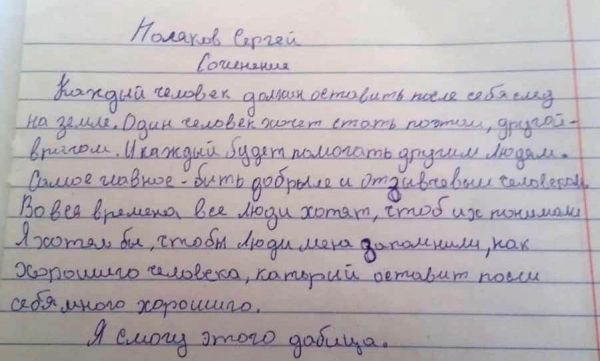 Поляков Сергей
Сочинение
Каждый человек должин оставить после себя след
на земле. Один человек хочет стать поэтом, другой -
врачом. И каждый будет помогать другим людям.
Самое главное - быть добрыле и отзывчевым человеком.
Во вся времена все люди хотят, чтоб их понимали
Я хотел бы, чтобы люди меня запомнили, как
хорошиго человека, каторий оставит посли
себя много хорошиго.
Я смогу этого дабица.